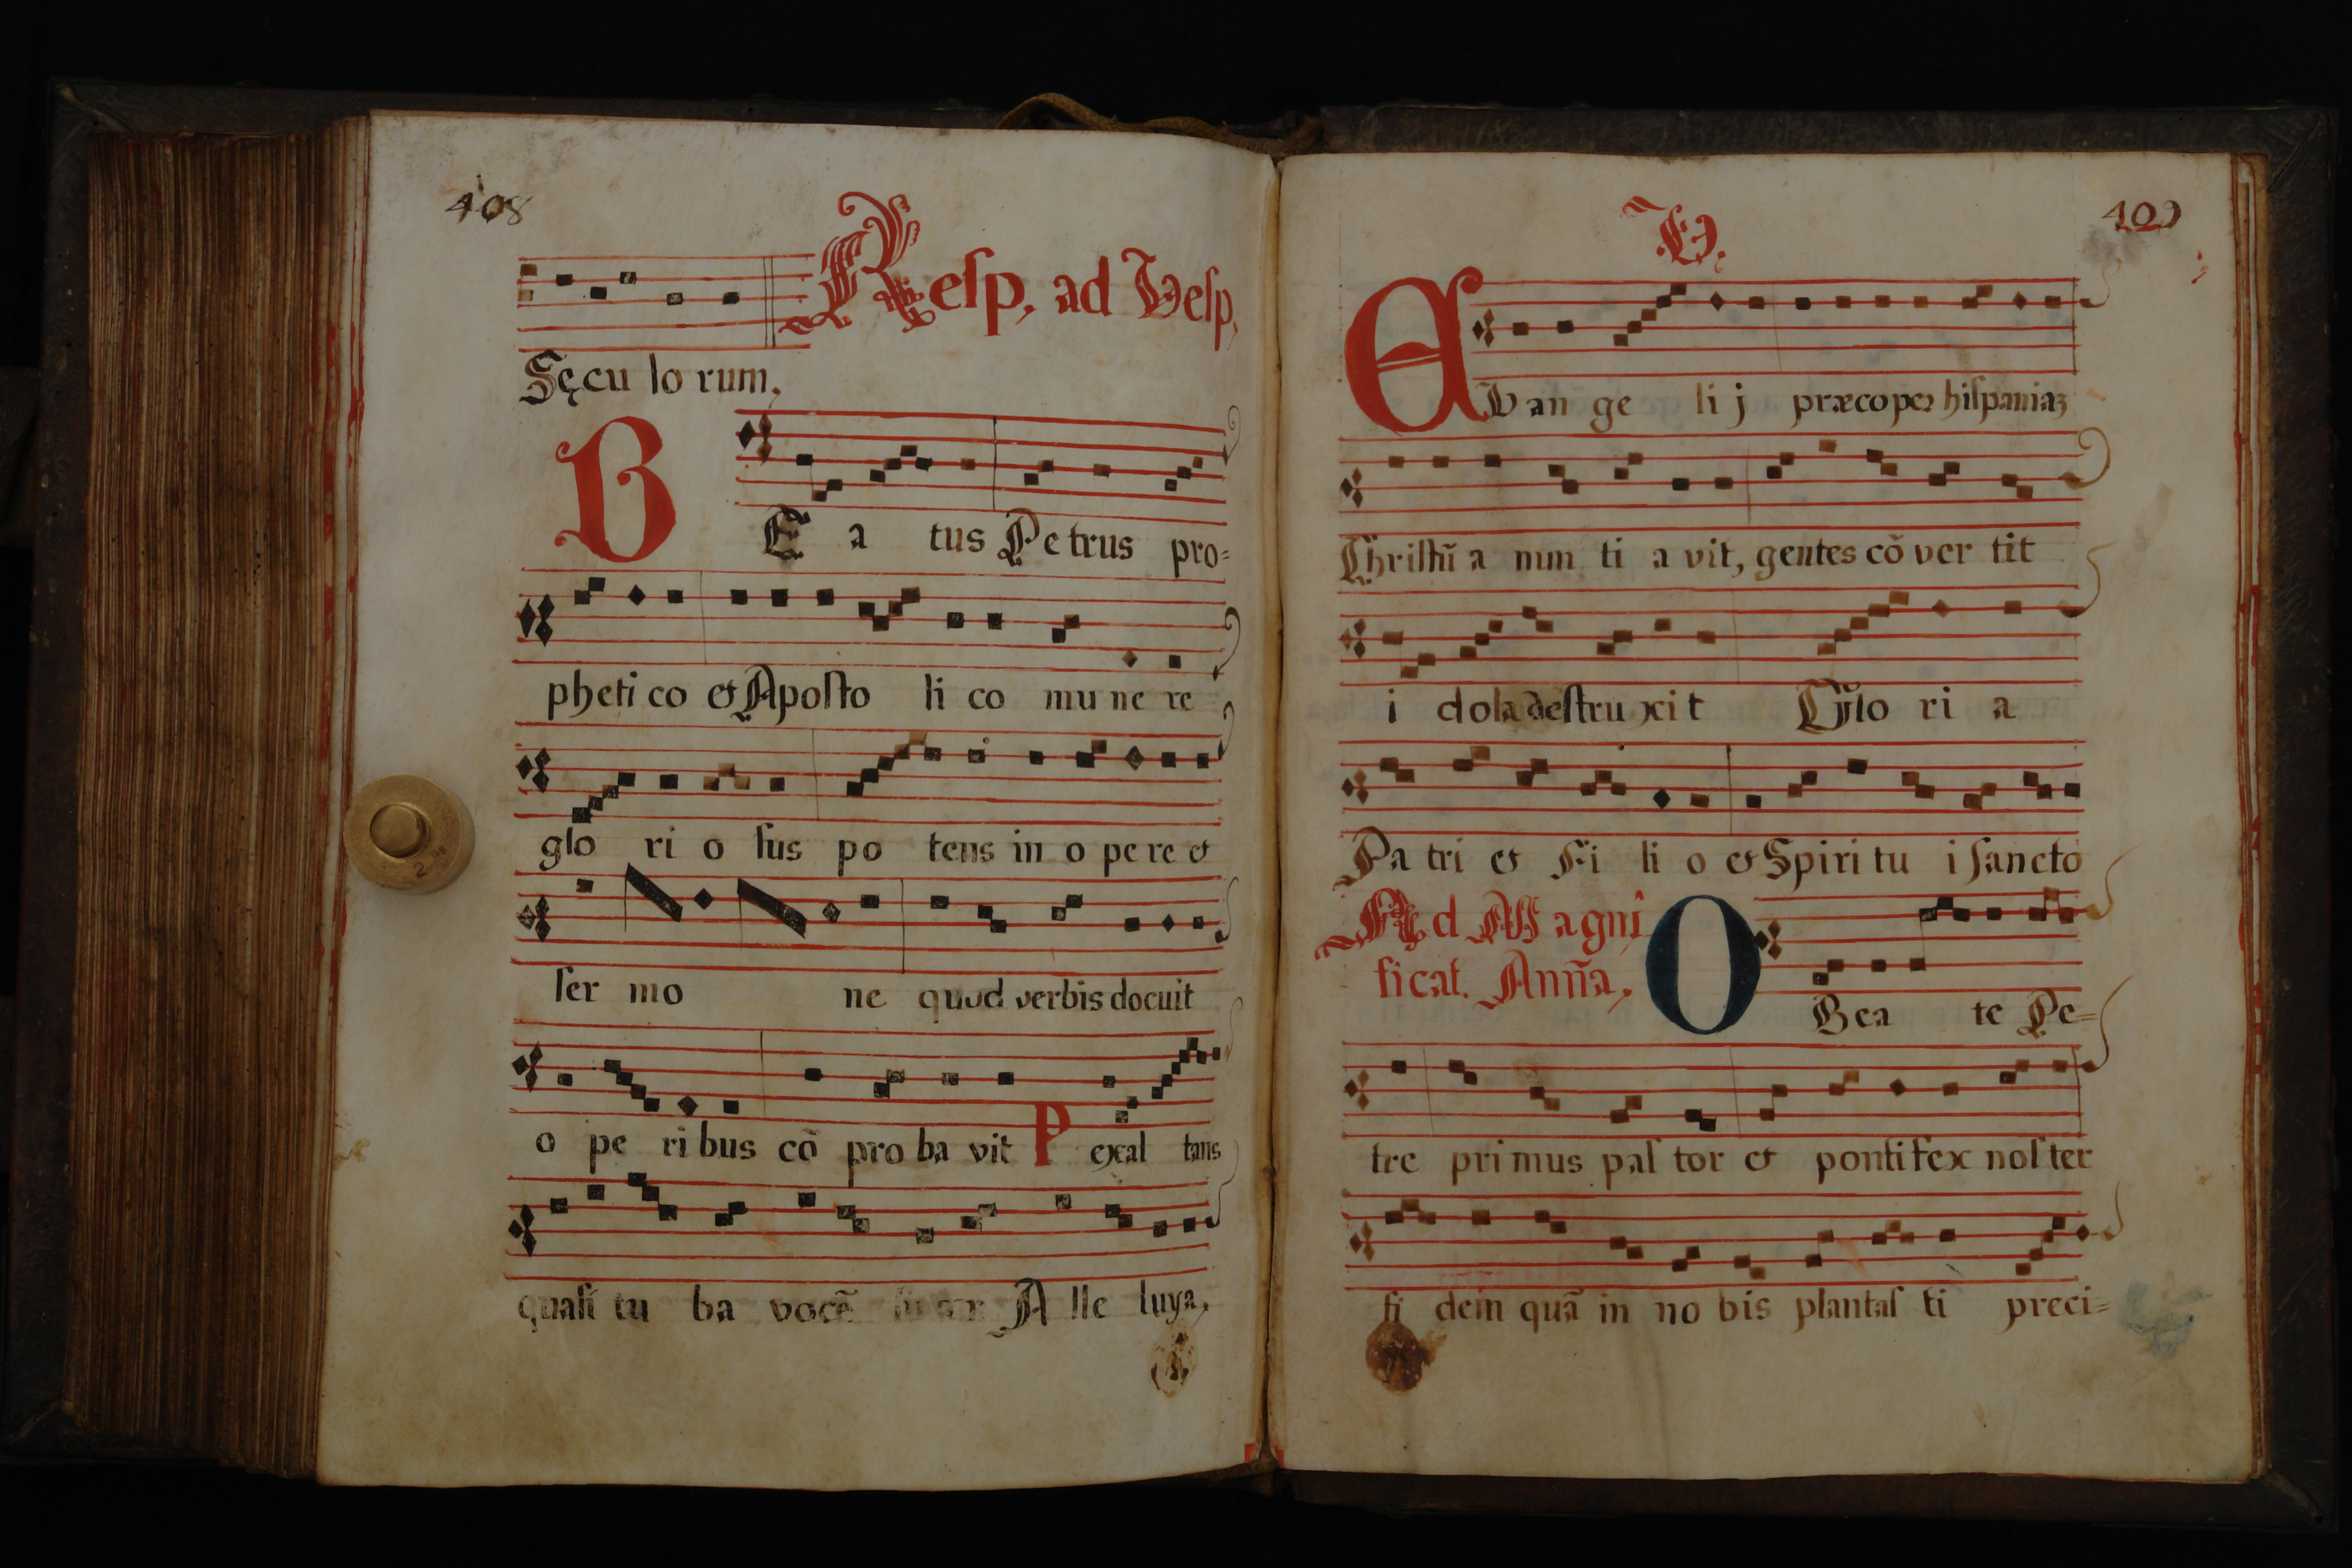 408
Resp, ad Vesp,
Sęcu lo rum,
B E a tus Petrus pro=
pheti co & Aposto li co mu ne re
glo ri o sus po tens in o pe re &
ser mo ne quod verbis docuit
o pe ri bus cõ pro ba vit P exal tans
quasi tu ba vocẽ A lle luya,
409
V.
E Van ge li j præco per hispaniaz
Christũ a nun ti a vit, gentes cõ ver tit
i dola destru xit Glo ri a
Pa tri & Fi li o & Spiri tu i sancto
Ad Magni
ficat. Anña,
O Bea te Pe=
tre primus pas tor & pontifex nos ter
fi dem quã in no bis plantas ti preci=